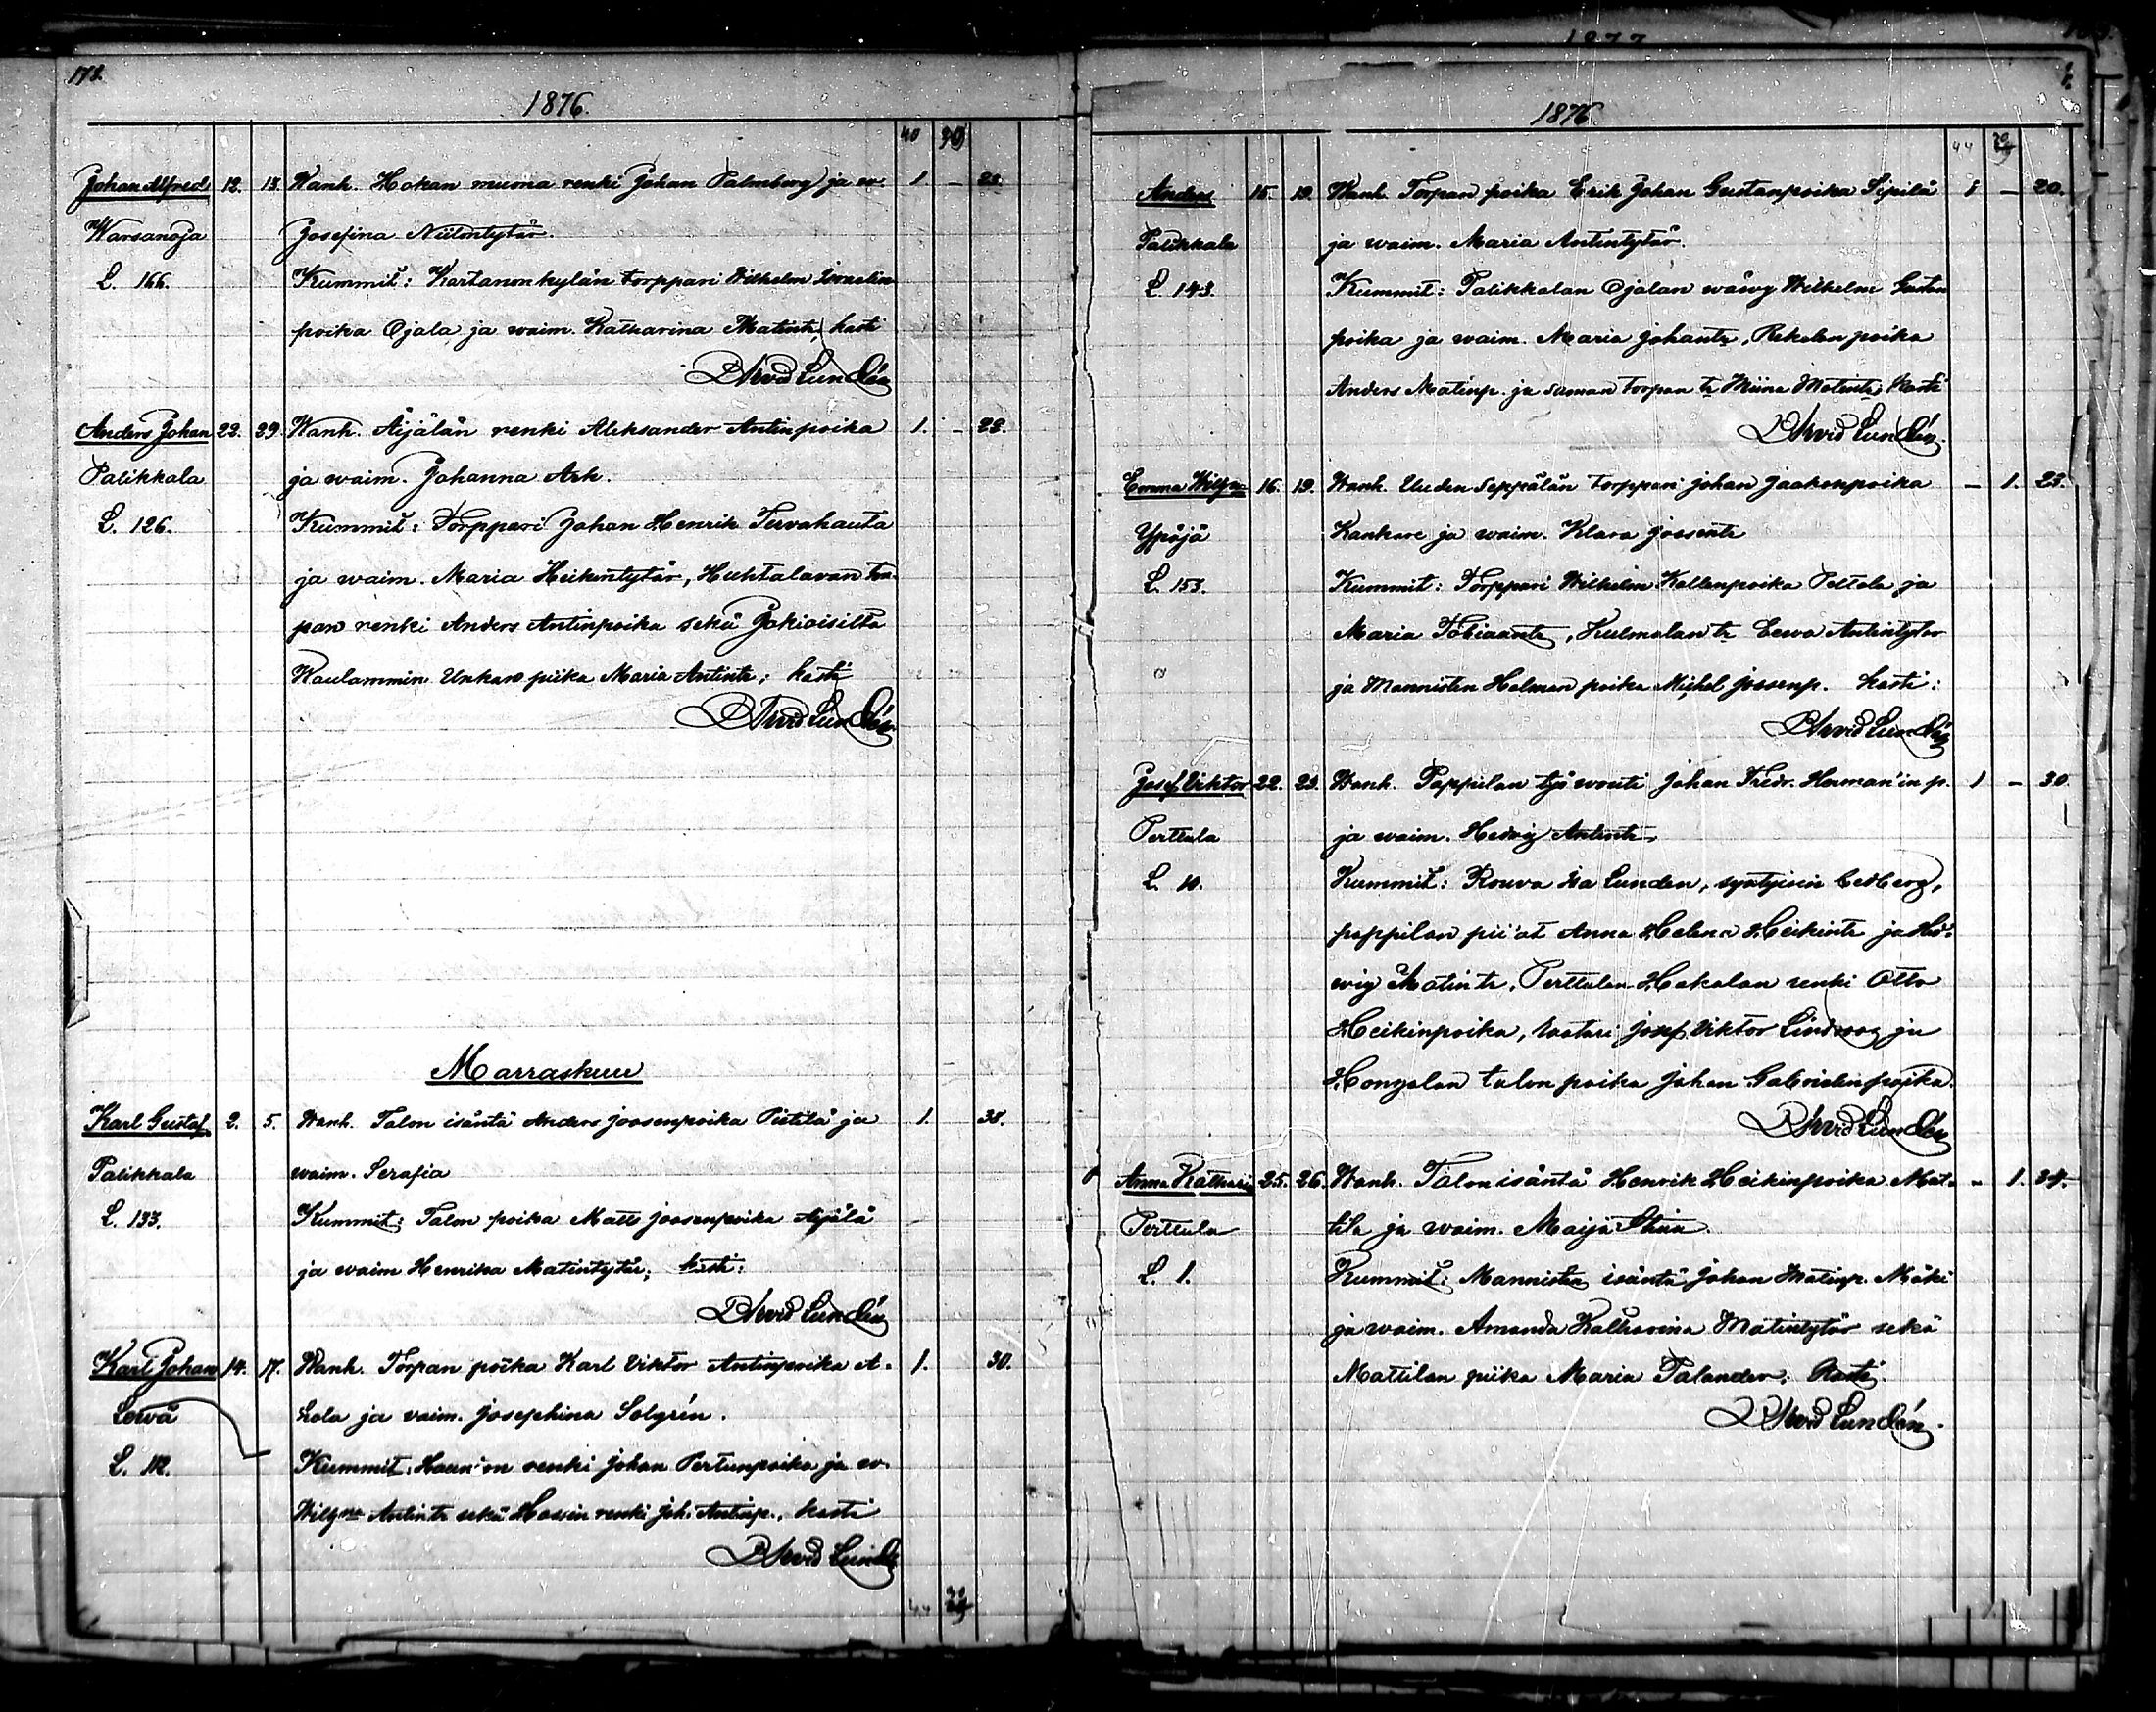 178.
1876.
40
Johan Alfred 12. 13. Wanh. Hakan muona renki Johan Palmberg ja w. 1 - 23.
Warsanoja Josefina Niilontytär.
L. 166. Kummit: Kartanonkylän torppari Wilhelm Israelin
poika Ojala ja waim. Katharina Matintr, kasti
Arvid Lundén
Anders Johan 22. 29. Wanh. Äijälän renki Aleksander Antinpoika 1. - 22.
Palikkala ja waim. Johanna Ark.
L. 126. Kummit: Torppari Johan Henrik Tervahauta
ja waim. Maria Heikintytär, Huhtalavan tor-
pan renki Anders Antinpoika sekä Jokioisilta
Kaulammin Unkaro piika Maria Antintr; kasti
Arvid Lundén
Marraskuu
Karl Gustaf 2. 5. Wanh. Talon isäntä Anders Joosenpoika Pietilä ja 1. 38.
Palikkala waim. Serafia
L. 133. Kummit: Talon poika Matts Joosenpoika Äijälä
ja waim Henrika Matintytär; kasti:
Arvid Lundén
Karl Johan 14. 17. Wanh. Torpan poika Karl Viktor Antinpoika A- 1. 30.
Lewä hola ja vaim. Josephina Solgrén.
L. 112. Kummit: renki Johan Pertunpoika ja w.
Wilgna Antintr sekä Hossin renki Joh. Antinp., kasti
Arvid Lundé
44
1877
1876.
44
Anders 15. 19. Wanh. Torpan poika Erik Johan Gustanpoika Sipilä 1 - 20.
Palikkala ja waim. Maria Antintytär.
L. 143. Kummit: Palikkalan Ojalan wäwy Wilhelm Gustan
poika ja waim. Maria Johantr, Rekolan poika
Anders Matinp. ja saman torpan tr Miina Matintr; Kasti
Arvid Lundén.
Emma Wilgna 16. 19. Wanh. Uuden Seppälän torppari Johan Jaakonpoika - 1. 23.
Ypäjä Kankare ja waim. Klara Joosentr
L. 153. Kummit: Torppari Wilhelm Kallenpoika Peltola ja
Maria Tobiaantr, Kulmalan tr Eewa Antintytär
ja Mannisten Holman poika Mickel Joosenp. kasti:
Arvid Lundén
Josef Viktor 22. 23. Wanh. Pappilan työ wouti Johan Fredr. Herman'in p. 1 - 30
Perttula ja waim. Hedvig Antintr.
L. 10. Kummit: Rouva Ida Lunden, syntyisin Cedberg,
pappilan pii'at Anna Helena Heikintr ja Hed-
wig Matintr, Perttulan Hakalan renki Otto
Heikinpoika, Waatari Josef Viktor Lindroos ja
Hongalan talon poika Johan Gabrielinpoika.
Arvid Lundén
Anna Kathari 25. 26. Wanh. Talon isäntä Henrik Heikinpoika Mat- - 1. 34.
Perttula tila ja waim. Maija Stiina.
L. 1. Kummit: Mannisten isäntä Johan Matinp. Mäki
ja waim. Amanda Katharina Matintytär sekä
Mattilan piika Maria Palander; Kasti.
Arvid Lundén.